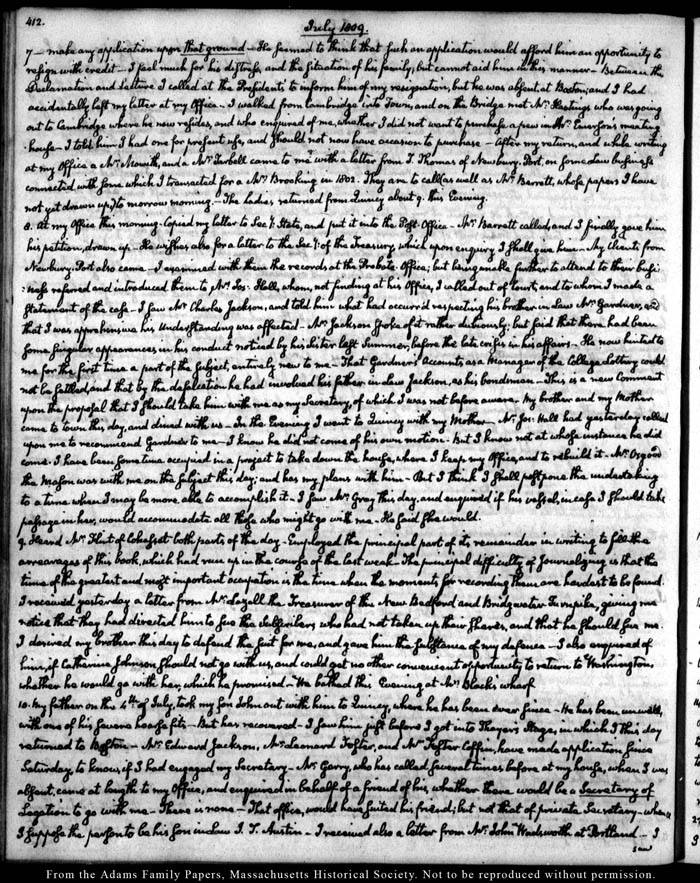 412.
July 1809.
7 — make any application upon that ground — He seemed to think that such an application would afford him an opportunity to
resign with credit — I feel much for his distress, and the situation of his family, but cannot aid him in this manner — Between the
Declamation and Lecture I called at the President's to inform him of my resignation, but he was absent at Boston, and I had
accidentally left my letter at my Office — I walked from Cambridge into Town, and on the Bridge met Mr. Hastings who was going
out to Cambridge where he now resides, and who enquired of me, whether I did not want to purchase a pew in Mr. Emerson's meeting
-house — I told him I had one for present use, and should not now have occasion to purchase — After my return, and while writing
at my Office a Mr. and a Mr. Tarbell came to me with a letter from J. Thomas of Newbury-Port, on some law business
connected with some which I transacted for a Mr. Brooking in 1802. They are to call (as well as Mr. Barrett, whose papers I have
not yet drawn up,) to morrow morning. — The Ladies returned from Quincy about 9. this Evening.
8. At my Office this morning. Copied my letter to Secy. State, and put it into the Post-Office — Mr. Barrett called, and I finally gave him
his petition, drawn up — He wishes also for a letter to the Secy. of the Treasury, which upon enquiry I shall give him — My Clients from
Newbury-Port also came — I examined with them the records at the Probate-Office; but being unable further to attend to their busi
:ness referred and introduced them to Mr. Jos: Hall, whom, not finding at his Office, I called out of Court, and to whom I made a
statement of the case — I saw Mr. Charles Jackson, and told him what had occurr'd respecting his brother in law Mr. Gardner, and
that I was apprehensive his Understanding was affected — Mr. Jackson spoke of it rather dubiously; but said that there had been
some singular appearances in his conduct noticed by his sister last Summer, before the late crisis in his affairs — He now hinted to
me for the first time a part of the subject, entirely new to me — That Gardner's Accounts as a Manager of the College-Lottery could
not be settled, and that by the defalcation he had involved his father in law Jackson, as his bondsman — This is a new Comment
upon the proposal that I should take him with me as my Secretary, of which I was not before aware. My brother and my Mother
came to town this day, and dined with us — In the Evening I went to Quincy with my Mother — Mr. Jos: Hall had yesterday called
upon me to recommend Gardner to me — I know he did not come of his own motion. But I know not at whose instance he did
come. I have been some time occupied in a project to take down the house, where I keep my Office, and to rebuild it — Mr. Osgood
the Mason was with me on the subject this day; and has my plans with him — But I think I shall postpone the undertaking
to a time when I may be more able to accomplish it — I saw Mr. Gray this day, and enquired if his vessel, in case I should take
passage in her, would accommodate all those who might go with me — He said she would.
9. Heard Mr. Flint of Cohasset both parts of the day — Employed the principal part of its remainder in writing to fill the
arrearages of this book, which had run up in the course of the last week — The principal difficulty of Journalizing is that the
time of the greatest and most important occupation is the time when the moments for recording them are hardest to be found.
I received yesterday a letter from Mr. Lazell the Treasurer of the New Bedford and Bridgwater Turnpike, giving me
notice that they had directed him to sue the subscribers who had not taken up their shares, and that he should sue me.
I desired my brother this day to defend the suit for me, and gave him the substance of my defence — I also enquired of
him, if Catherine Johnson should not go with us, and could get no other convenient opportunity to return to Washington,
whether he would go with her, which he promised — He bathed this Evening at Mr. Black's wharf
10. My father on the 4th of July, took my son John out with him to Quincy, where he has been ever since — He has been unwell,
with one of his severe hoarse fits — But has recovered — I saw him just before I got into Thayer's Stage, in which I this day
returned to Boston — Mr. Edward Jackson, Mr. Leonard Foster, and Mr. Foster Coffin, have made application since
Saturday, to know, if I had engaged my Secretary — Mr. Gerry, who has called several times before at my house, when I was
absent, came at length to my Office, and enquired in behalf of a friend of his, whether there would be a Secretary of
Legation to go with me — There is none — That office, would have suited his friend; but not that of private Secretary — whom
I suppose the person to be his son in law J. T. Austin — I received also a letter from Mr. John Wadsworth at Portland — I
saw
From the Adams Family Papers, Massachusetts Historical Society. Not to be reproduced without permission.